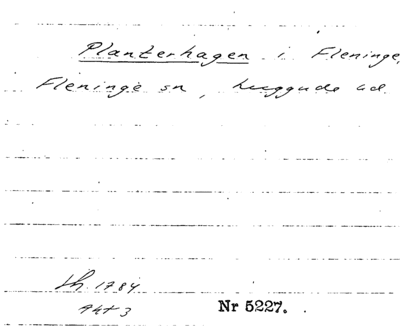 Planterhagen i Fleninge,
Fleninge sn, Luggude hd.
Lh. 1784
Akt 3
Nr 5227.